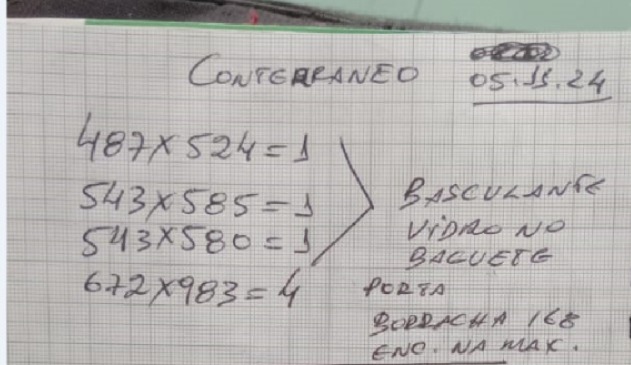 CONTERRANEO
05.11.24
487X524=1
543X585=1
543X580=1
672X983=4
BASCULANTE
VIDRO NO
BAGUETE
PORTA
BORRACHA 168
ENC. NA MAX.